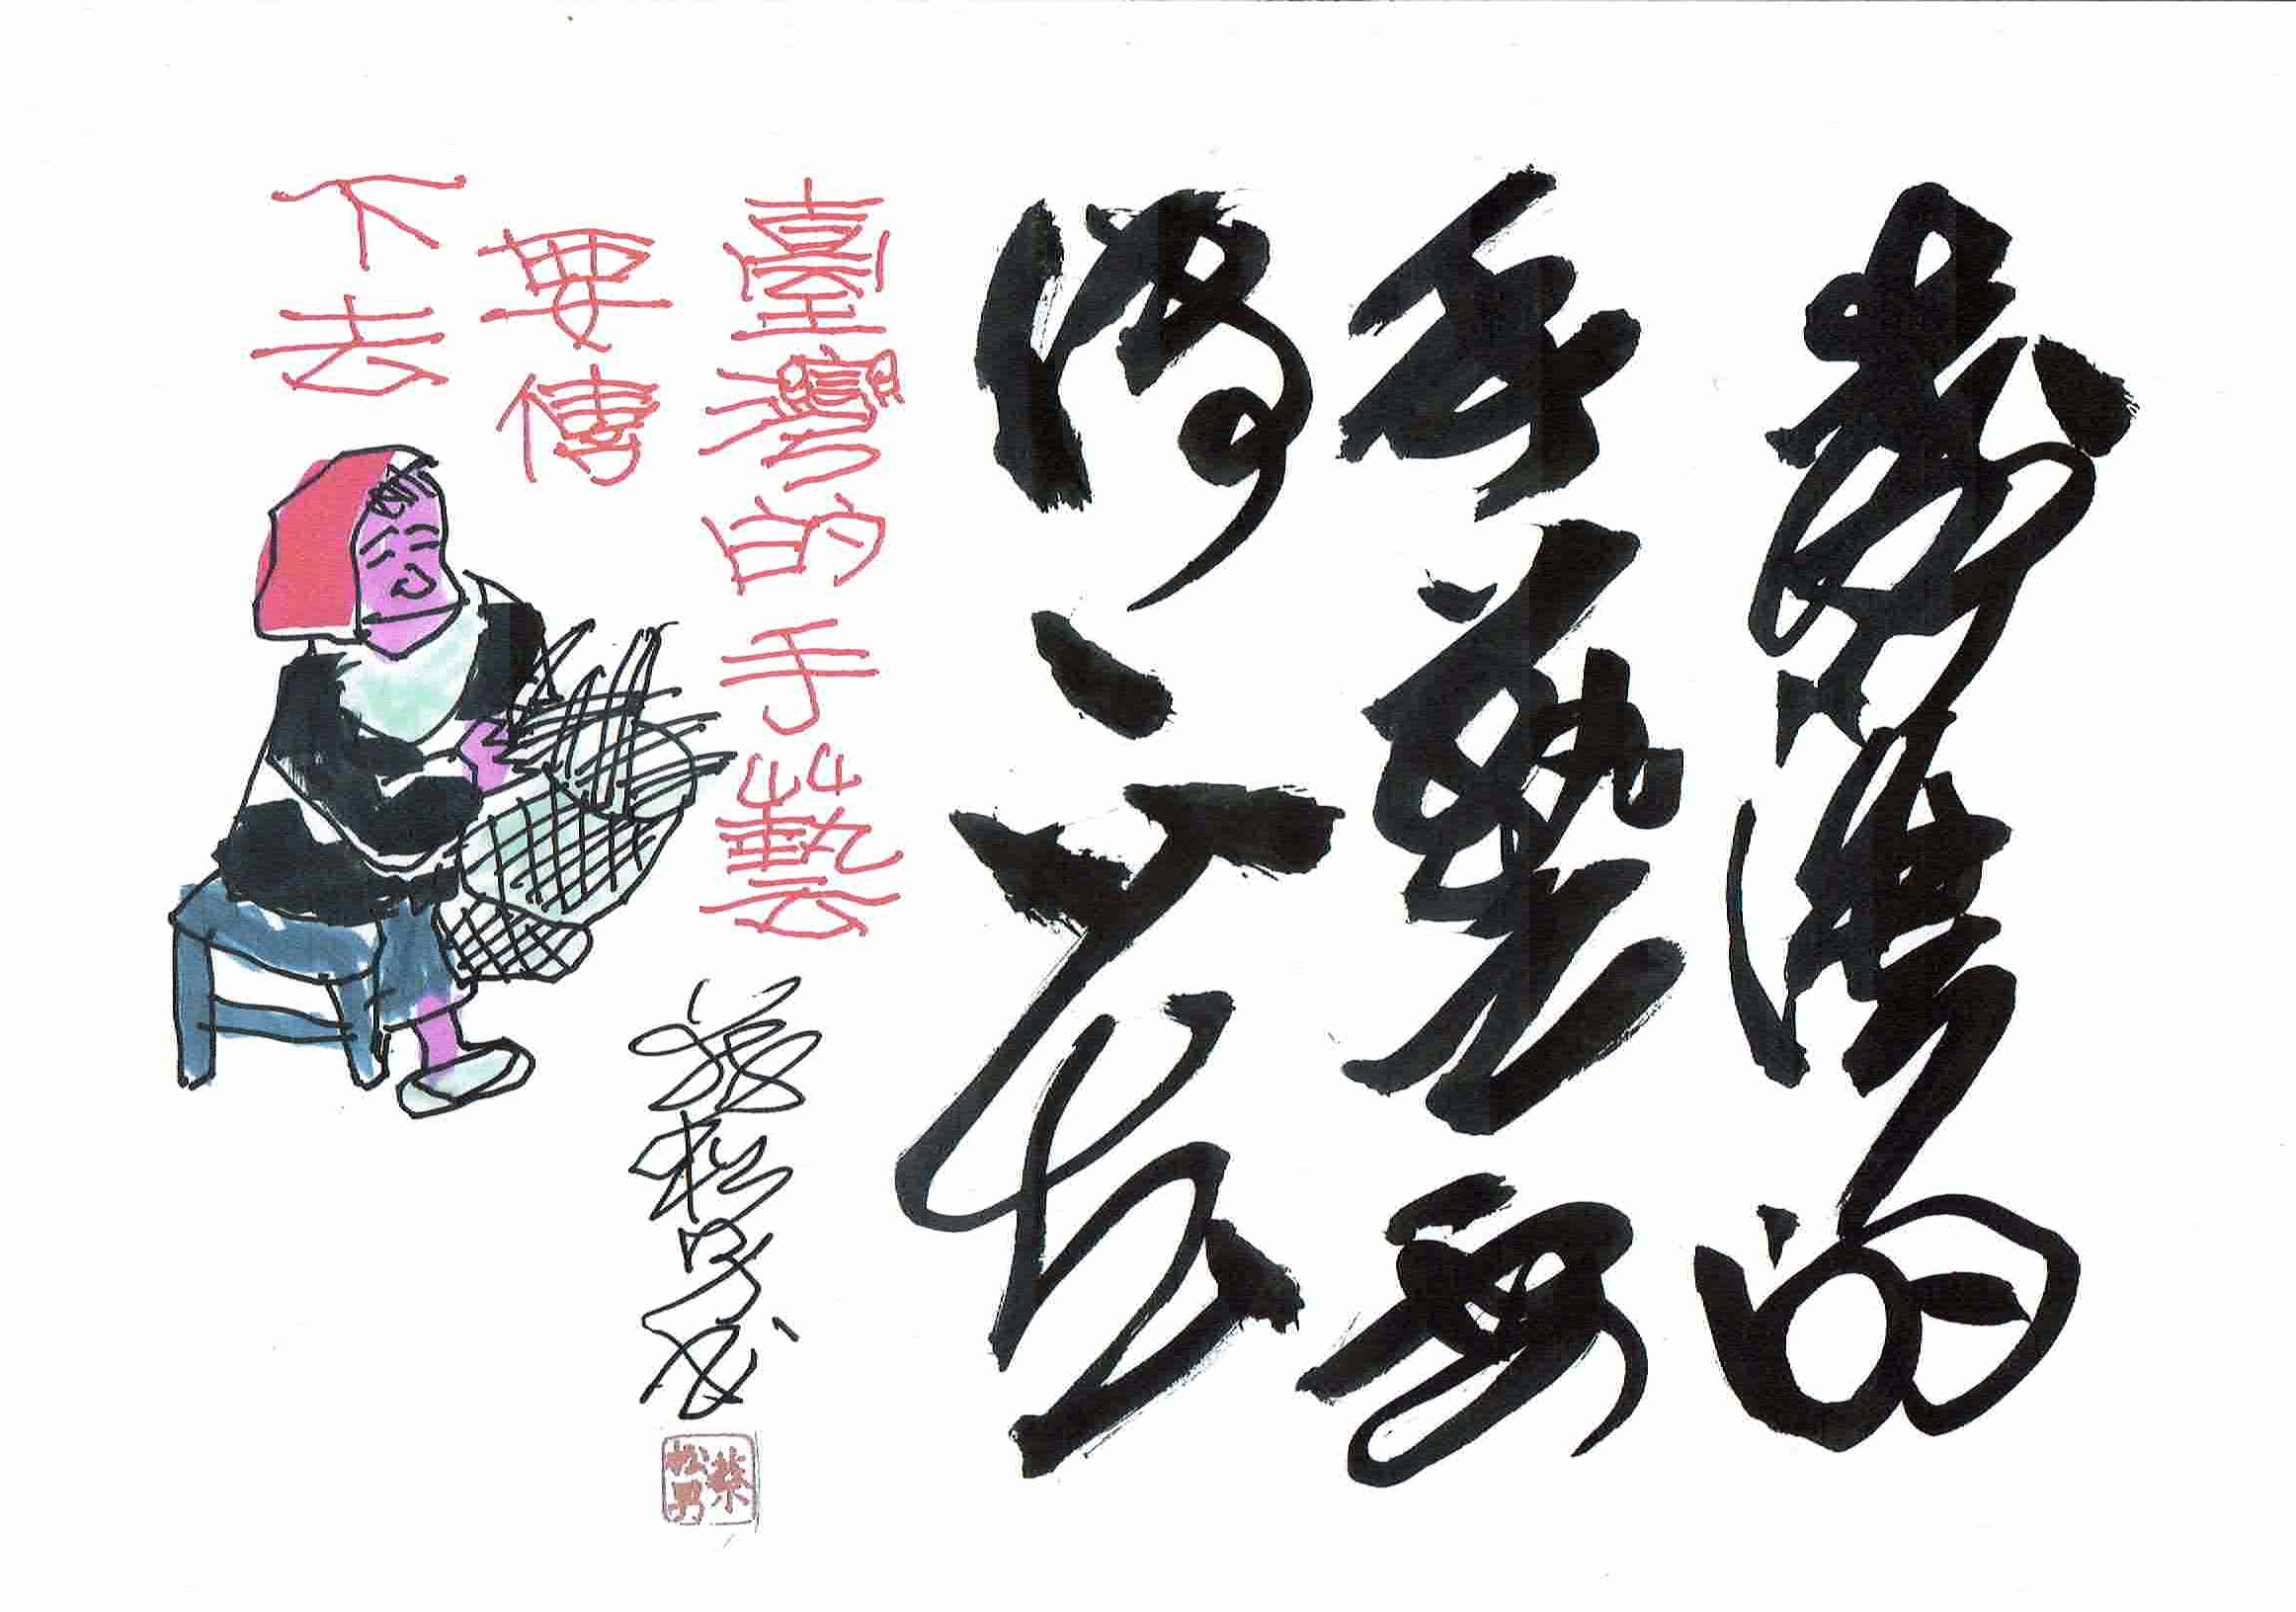 臺灣的
手藝要
傳下去
臺灣的手藝
要傳
下去
蔡松男